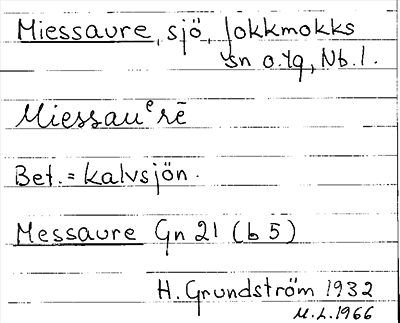 Miessaure, sjö, Jokkmokks
sn o. tg, Nb. l.
Miessauᵉrē
Bet. = kalvsjön.
Messaure Gn 21 (b 5)
H. Grundström 1932
M.L. 1966